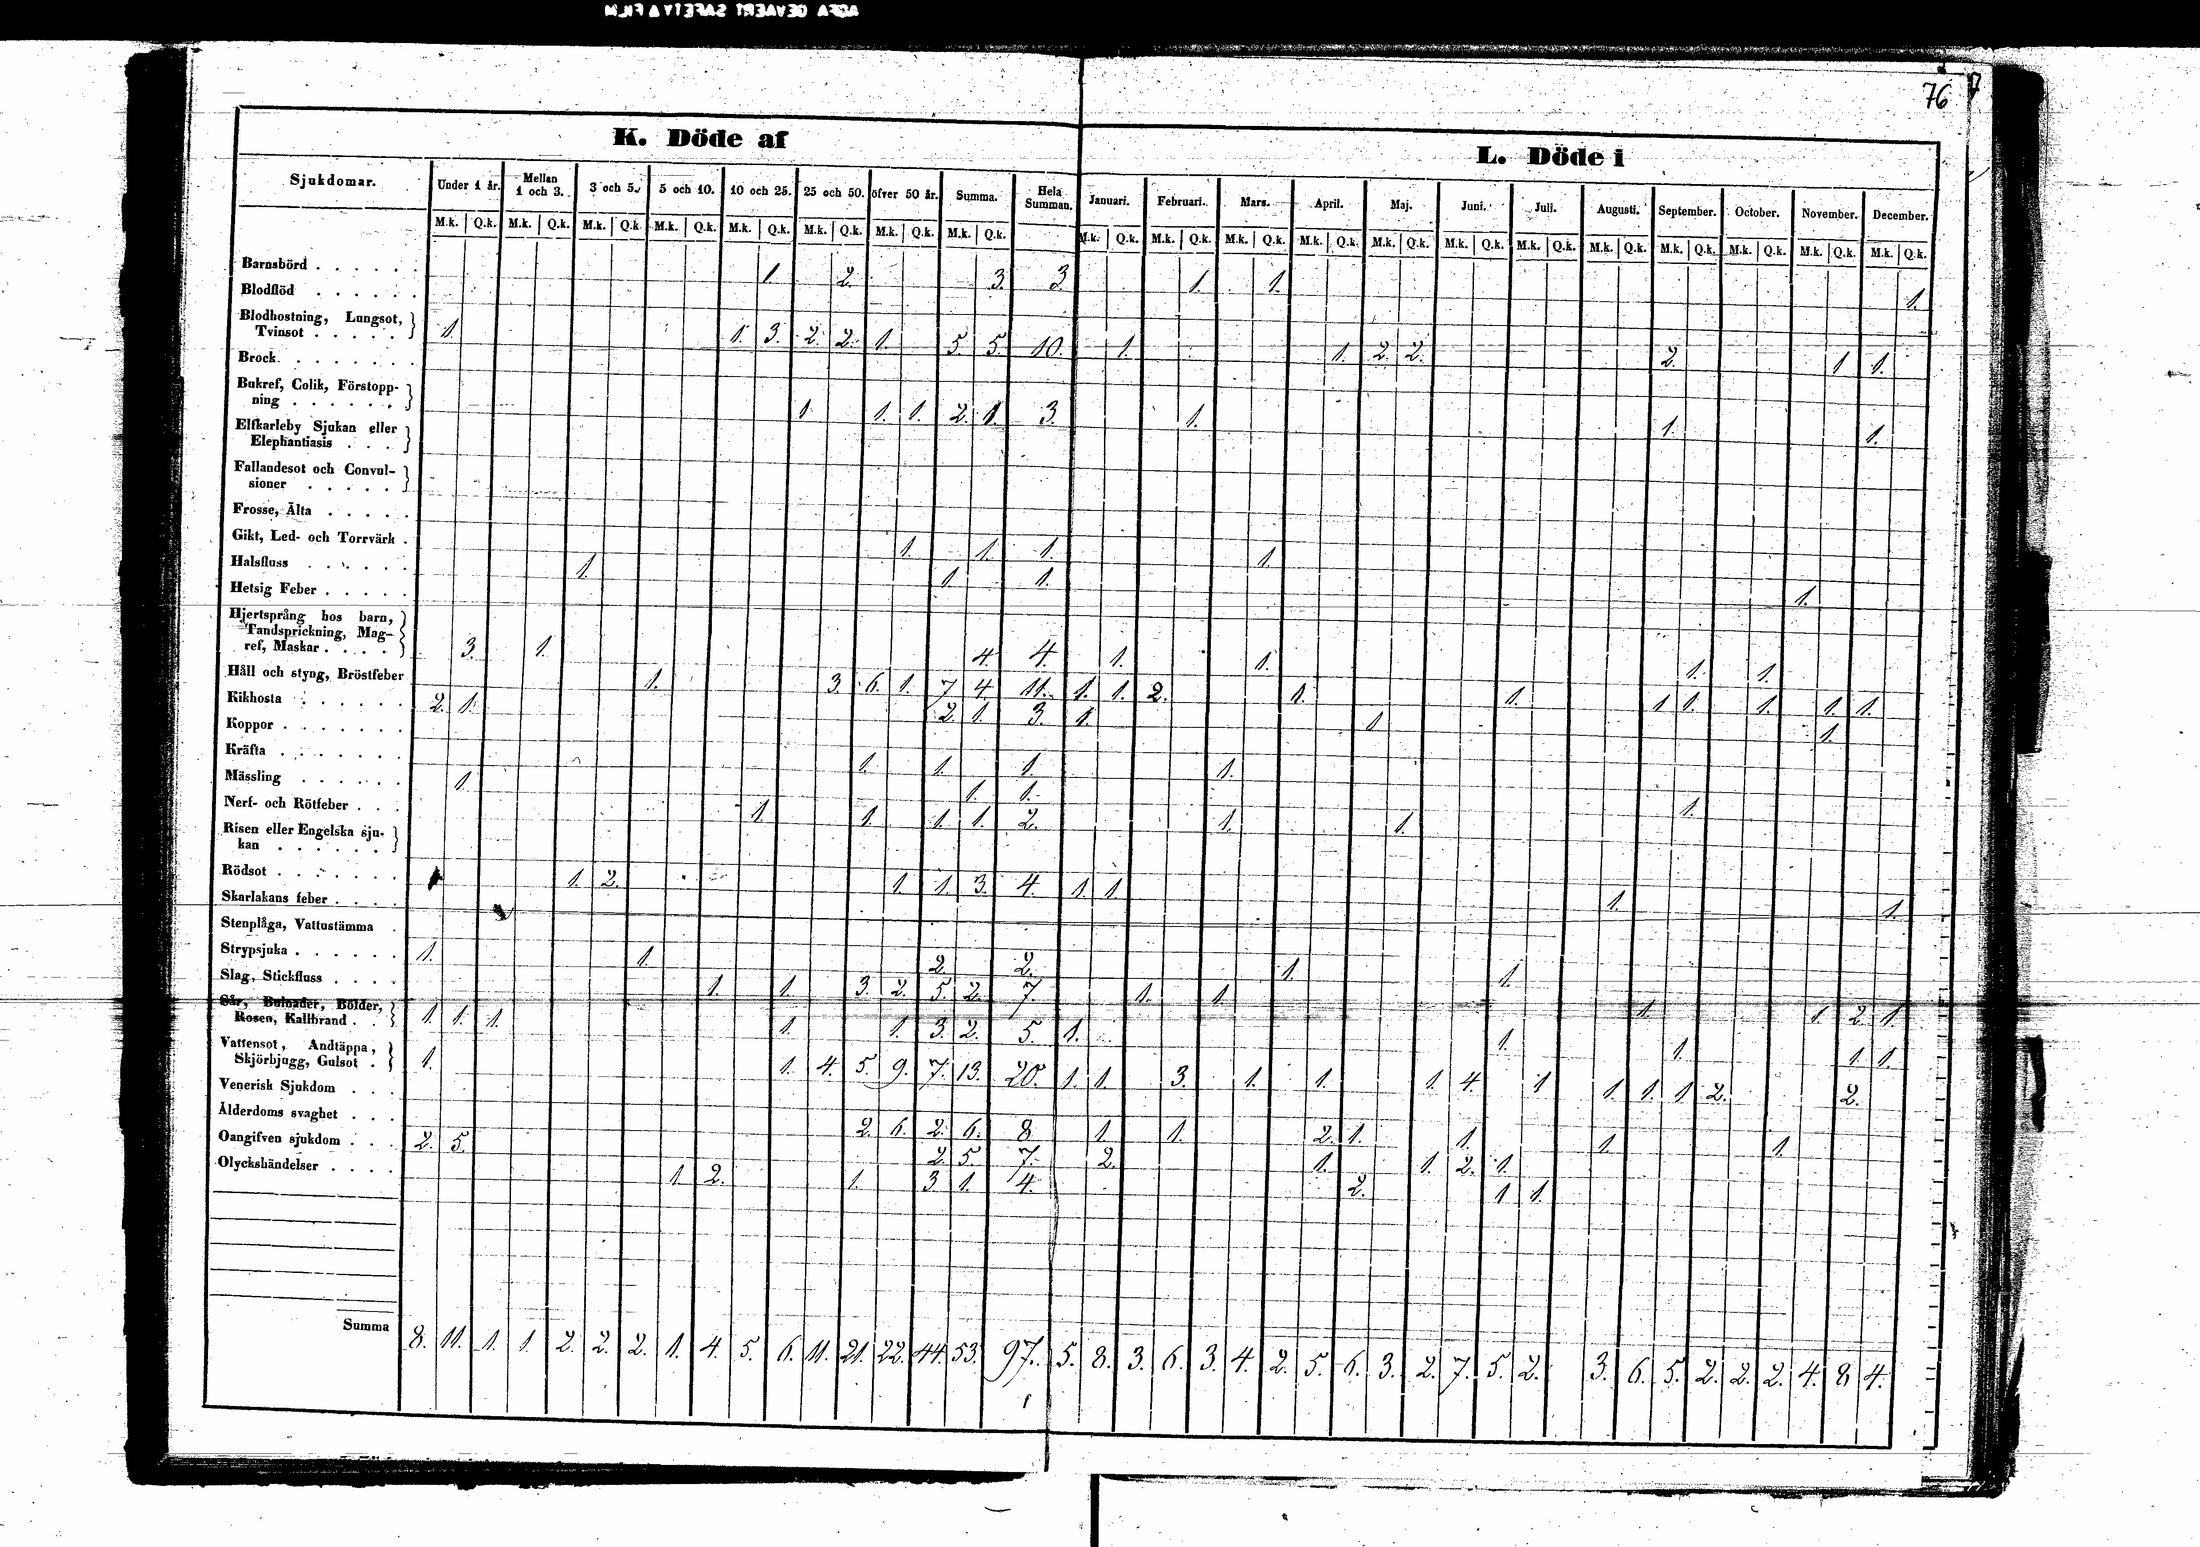 AGFA GEVAERT SAFETY FILM
76
K. Döde af
L. Döde i
Sjukdomar. Under 1 år. Mellan 1 och 3. 3 och 5. 5 och 10. 10 och 25. 25 och 50. öfver 50 år. Summa. Hela Summan. Januari. Februari. Mars. April. Maj. Juni. Juli. Augusti. September. October. November. December.
M.k. Q.k. M.k. Q.k. M.k. Q.k. M.k. Q.k. M.k. Q.k. M.k. Q.k. M.k. Q.k. M.k. Q.k. M.k. Q.k. M.k. Q.k. M.k. Q.k. M.k. Q.k. M.k. Q.k. M.k. Q.k. M.k. Q.k. M.k. Q.k. M.k. Q.k. M.k. Q.k. M.k. Q.k. M.k. Q.k.
Barnsbörd . . . . . . 1. 2. 3. 3. 1. 1. 1.
Blodflöd . . . . . .
Blodhostning, Lungsot,
Tvinsot . . . . . 1. 1. 3. 2. 2. 1. 5. 5. 10. 1. 1. 2. 2. 2. 1 1.
Brock . . . . . . .
Bukref, Colik, Förstopp-
ning . . . . . . 1 1. 1. 2. 1. 3. 1. 1. 1.
Elfkarleby Sjukan eller
Elephantiasis . . .
Fallandesot och Convul-
sioner . . . . .
Frosse, Älta . . . . .
Gikt, Led- och Torrvärk . 1. 1. 1. 1.
Halsfluss . . . . . . 1. 1. 1. 1.
Hetsig Feber . . . . .
Hjertsprång hos barn,
Tandsprickning, Mag-
ref, Maskar . . . . 3. 1. 4. 4. 1. 1. 1. 1.
Håll och styng, Bröstfeber 1. 3. 6. 1. 7. 4. 11. 1. 1. 2. 1. 1. 1 1. 1. 1. 1.
Kikhosta . . . . . . 2. 1. 2. 1. 3. 1. 1 1.
Koppor . . . . . . .
Kräfta . . . . . . . 1. 1. 1. 1.
Mässling . . . . . . 1. 1. 1. 1.
Nerf- och Rötfeber . . . 1. 1. 1. 1. 2. 1. 1.
Risen eller Engelska sju-
kan . . . . . .
Rödsot . . . . . . . 1. 2. 1. 1. 3. 4. 1. 1. 1. 1.
Skarlakans feber . . . .
Stenplåga, Vattustämma .
Strypsjuka . . . . . . 1. 1. 2. 2. 1. 1.
Slag, Stickfluss . . . . 1. 1. 3. 2. 5. 2. 7. 1. 1. 1. 1. 2. 1.
Sår, Bulnader, Bölder,
Rosen, Kallbrand . . 1. 1. 1. 1. 1. 3. 2. 5. 1. 1. 1. 1. 1.
Vattensot, Andtäppa,
Skjörbjugg, Gulsot . 1. 1. 4. 5. 9. 7. 13. 20. 1. 1. 3. 1. 1. 1. 4. 1 1. 1. 1 2. 2.
Venerisk Sjukdom . . .
Ålderdoms svaghet . . . 2. 6. 2. 6. 8 1. 1. 2. 1. 1. 1. 1.
Oangifven sjukdom . . . 2. 5. 2. 5. 7. 2. 1. 1. 2. 1.
Olyckshändelser . . . . 1 2. 1. 3 1. 4. 2. 1 1.
Summa 8. 11. 1. 1. 2. 2. 2. 1. 4. 5. 6. 11. 21. 22. 44. 53. 97. 5. 8. 3. 6. 3. 4. 2. 5. 6. 3. 2. 7. 5. 2. 3. 6. 5. 2. 2. 2. 4. 8 4.